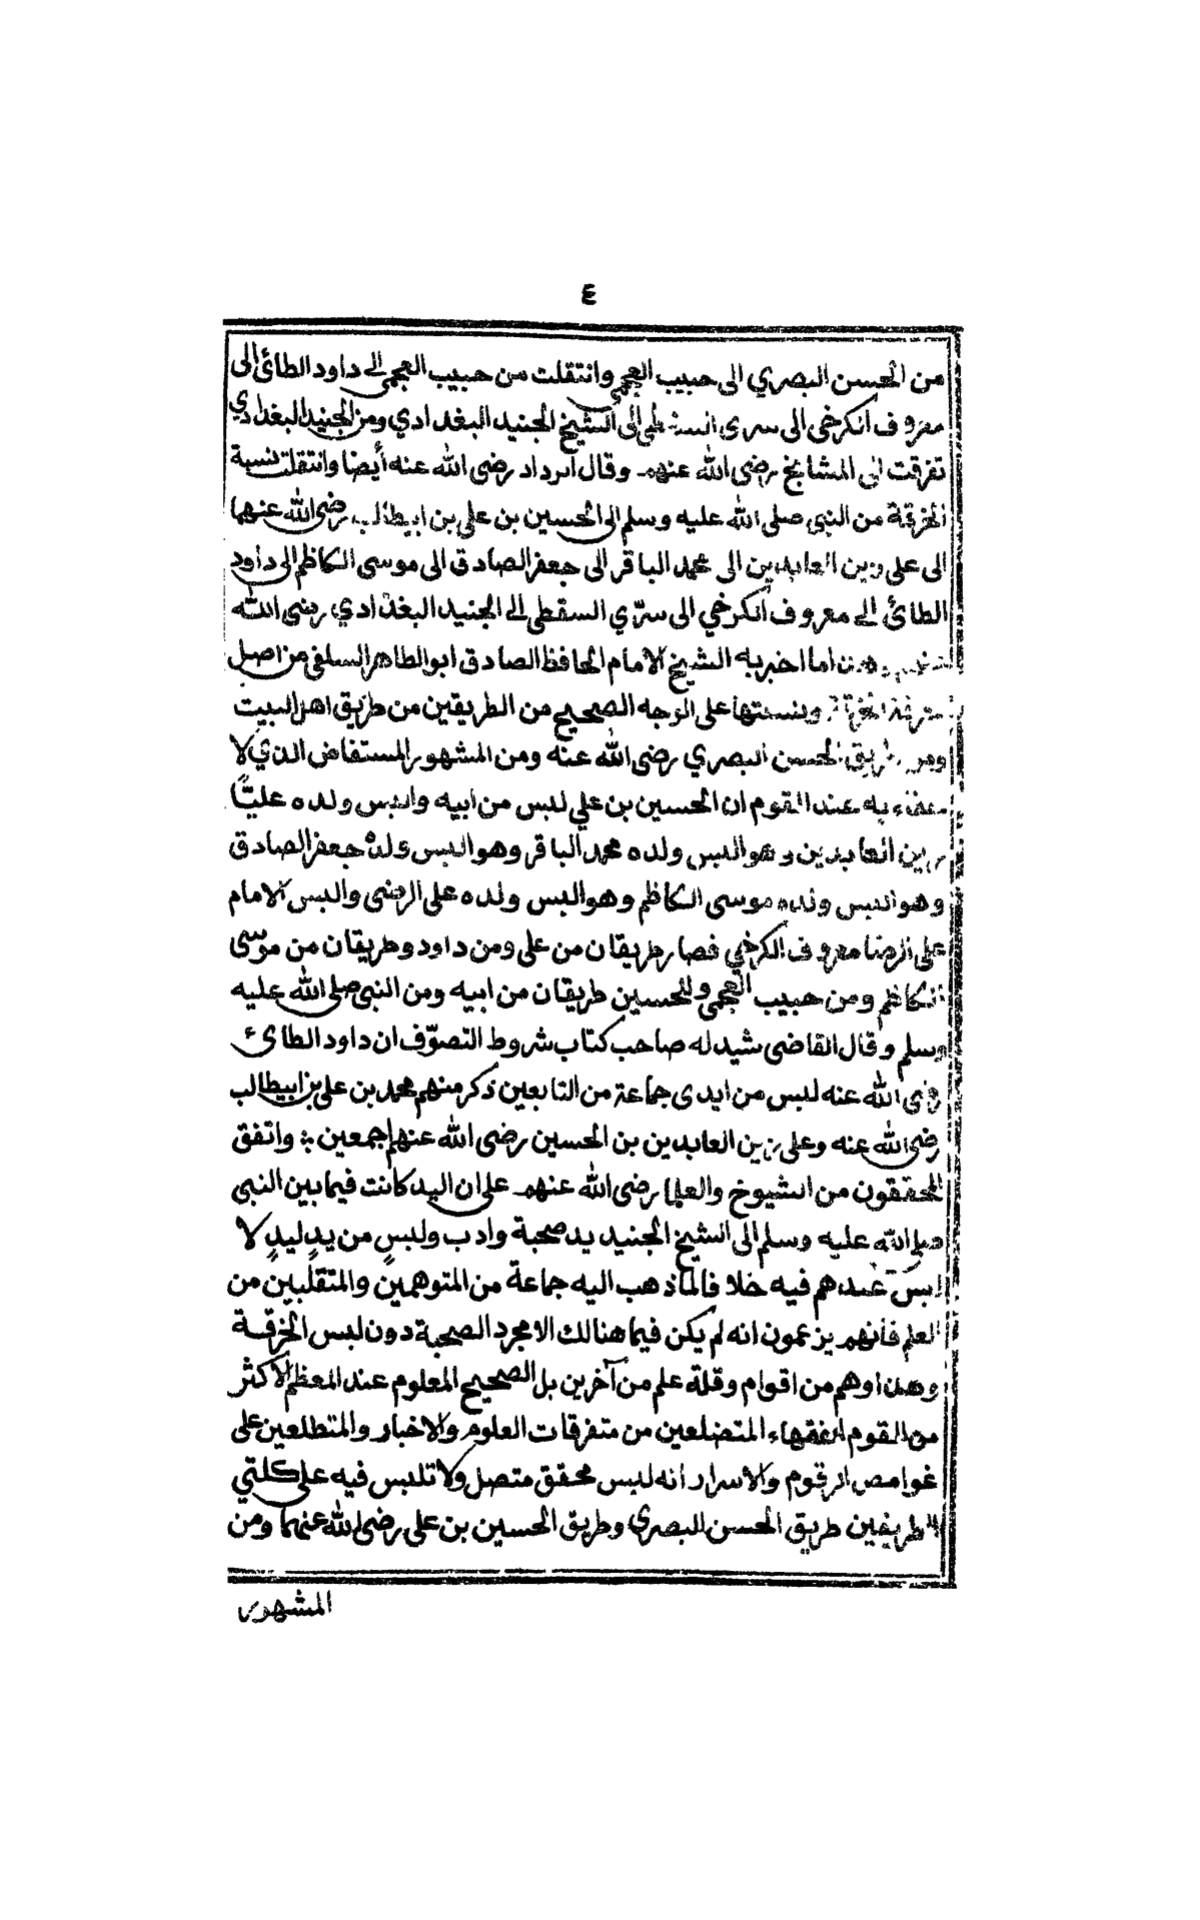 ٤
من الحسن البصري الى حبيب العجمي وانتقلت من حبيب العجمي الى داود الطائ الى
معروف الكرخي الى سرى السقطي الى الشيخ الجنيد البغدادي ومن الجنيد البغدادي
تفرقت الى المشايخ رضى الله عنهم وقال الرداد رضى الله عنه أيضا وانتقلت نسبة
الخرقة من النبي صلى الله عليه وسلم الى الحسين بن علي بن ابيطالب رضى الله عنهما
الى على زين العابدين الى محمد الباقر الى جعفر الصادق الى موسى الكاظم الى داود
الطائ الى معروف الكرخي الى سرّي السقطي الى الجنيد البغدادي رضى الله
عنهم وهذا ما اخبر به الشيخ الامام الحافظ الصادق ابو الطاهر السلفي من اصل
الخرقة ونسبتها على الوجه الصحيح من الطريقين من طريق اهل البيت
ومن طريق الحسن البصري رضى الله عنه ومن المشهور المستفاض الذي لا
خفاء به عند القوم ان الحسين بن علي لبس من ابيه والبس ولده عليّا
زين العابدين وهو البس ولده محمد الباقر وهو البس ولده جعفر الصادق
وهو البس ولده موسى الكاظم وهو البس ولده على الرضى والبس الامام
على الرضا معروف الكرخي فصار طريقان من على ومن داود وطريقان من موسى
الكاظم ومن حبيب العجمي وللحسين طريقان من ابيه ومن النبي صلى الله عليه
وسلم وقال القاضى شيدله صاحب كتاب شروط التصوّف ان داود الطائ
رضى الله عنه لبس من ايدى جماعة من التابعين ذكر منهم محمد بن على بن ابيطالب
رضى الله عنه وعلى زين العابدين بن الحسين رضى الله عنهم اجمعين ؞ واتفق
المحققون من الشيوخ والعلما رضى الله عنهم على ان اليد كانت فيما بين النبي
صلى الله عليه وسلم الى الشيخ الجنيد يد صحبة وادب ولبسٍ من يدٍ ليدٍ لا
لبس عندهم فيه خلا فا لما ذهب اليه جماعة من المتوهمين والمتقلّبين من
العلم فانهم يزعمون انه لم يكن فيما هنالك الا مجرد الصحبة دون لبس الخرقة
وهذا وهم من اقوام وقلة علم من آخرين بل الصحيح المعلوم عند المعظم الاكثر
من القوم الفقهاء المتضلعين من متفرقات العلوم والاخبار والمتطلعين على
غوامص الرقوم والاسرار انه لبس محقق متصل ولا تلبس فيه على كلتي
الطريقين طريق الحسن البصري وطريق الحسين بن على رضى الله عنهما ومن
المشهور